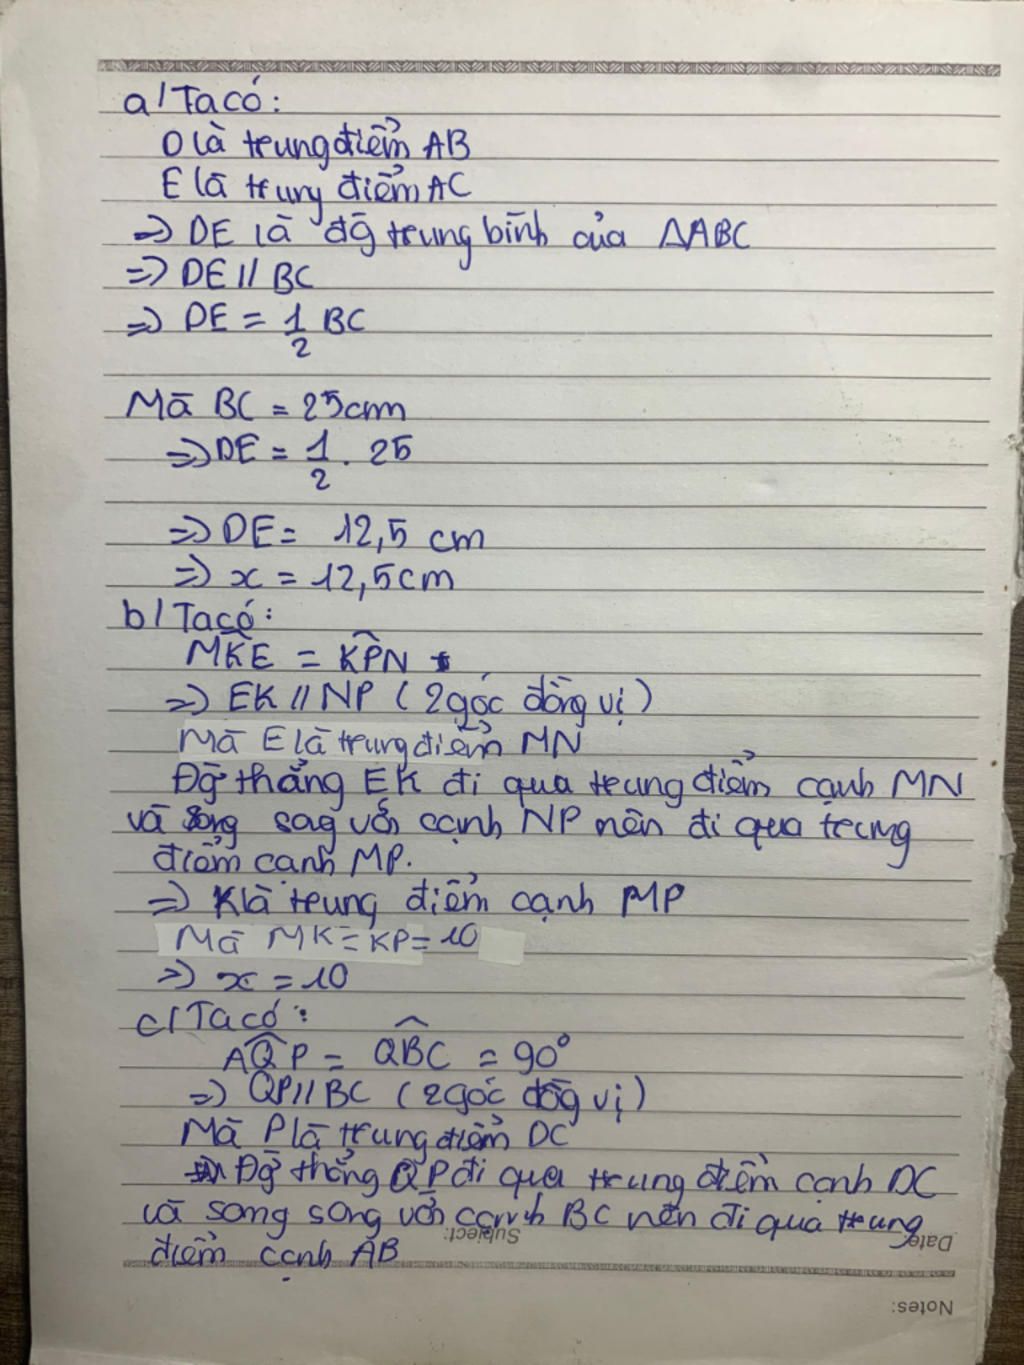 a/ Ta có:
D là trung điểm AB
E là trung điểm AC
=> DE là đg trung bình của ΔABC
=> DE // BC
=> DE = 1/2 BC
Mà BC = 25cm
=> DE = 1/2 . 25
=> DE = 12,5 cm
=> x = 12,5cm
b/ Ta có:
MK̂E = KP̂N
=> EK // NP (2 góc đồng vị)
Mà E là trung điểm MN
Đg thẳng EK đi qua trung điểm cạnh MN
và song sag với cạnh NP nên đi qua trung
điểm cạnh MP.
=> K là trung điểm cạnh MP
Mà MK = KP = 10
=> x = 10
c/ Ta có:
AQ̂P = QB̂C = 90°
=> QP // BC (2 góc đồg vị)
Mà P là trung điểm DC
Đg thẳng QP đi qua trung điểm cạnh DC
và song song với cạnh BC nên đi qua trung
điểm cạnh AB
Subject:
Date:
Notes: